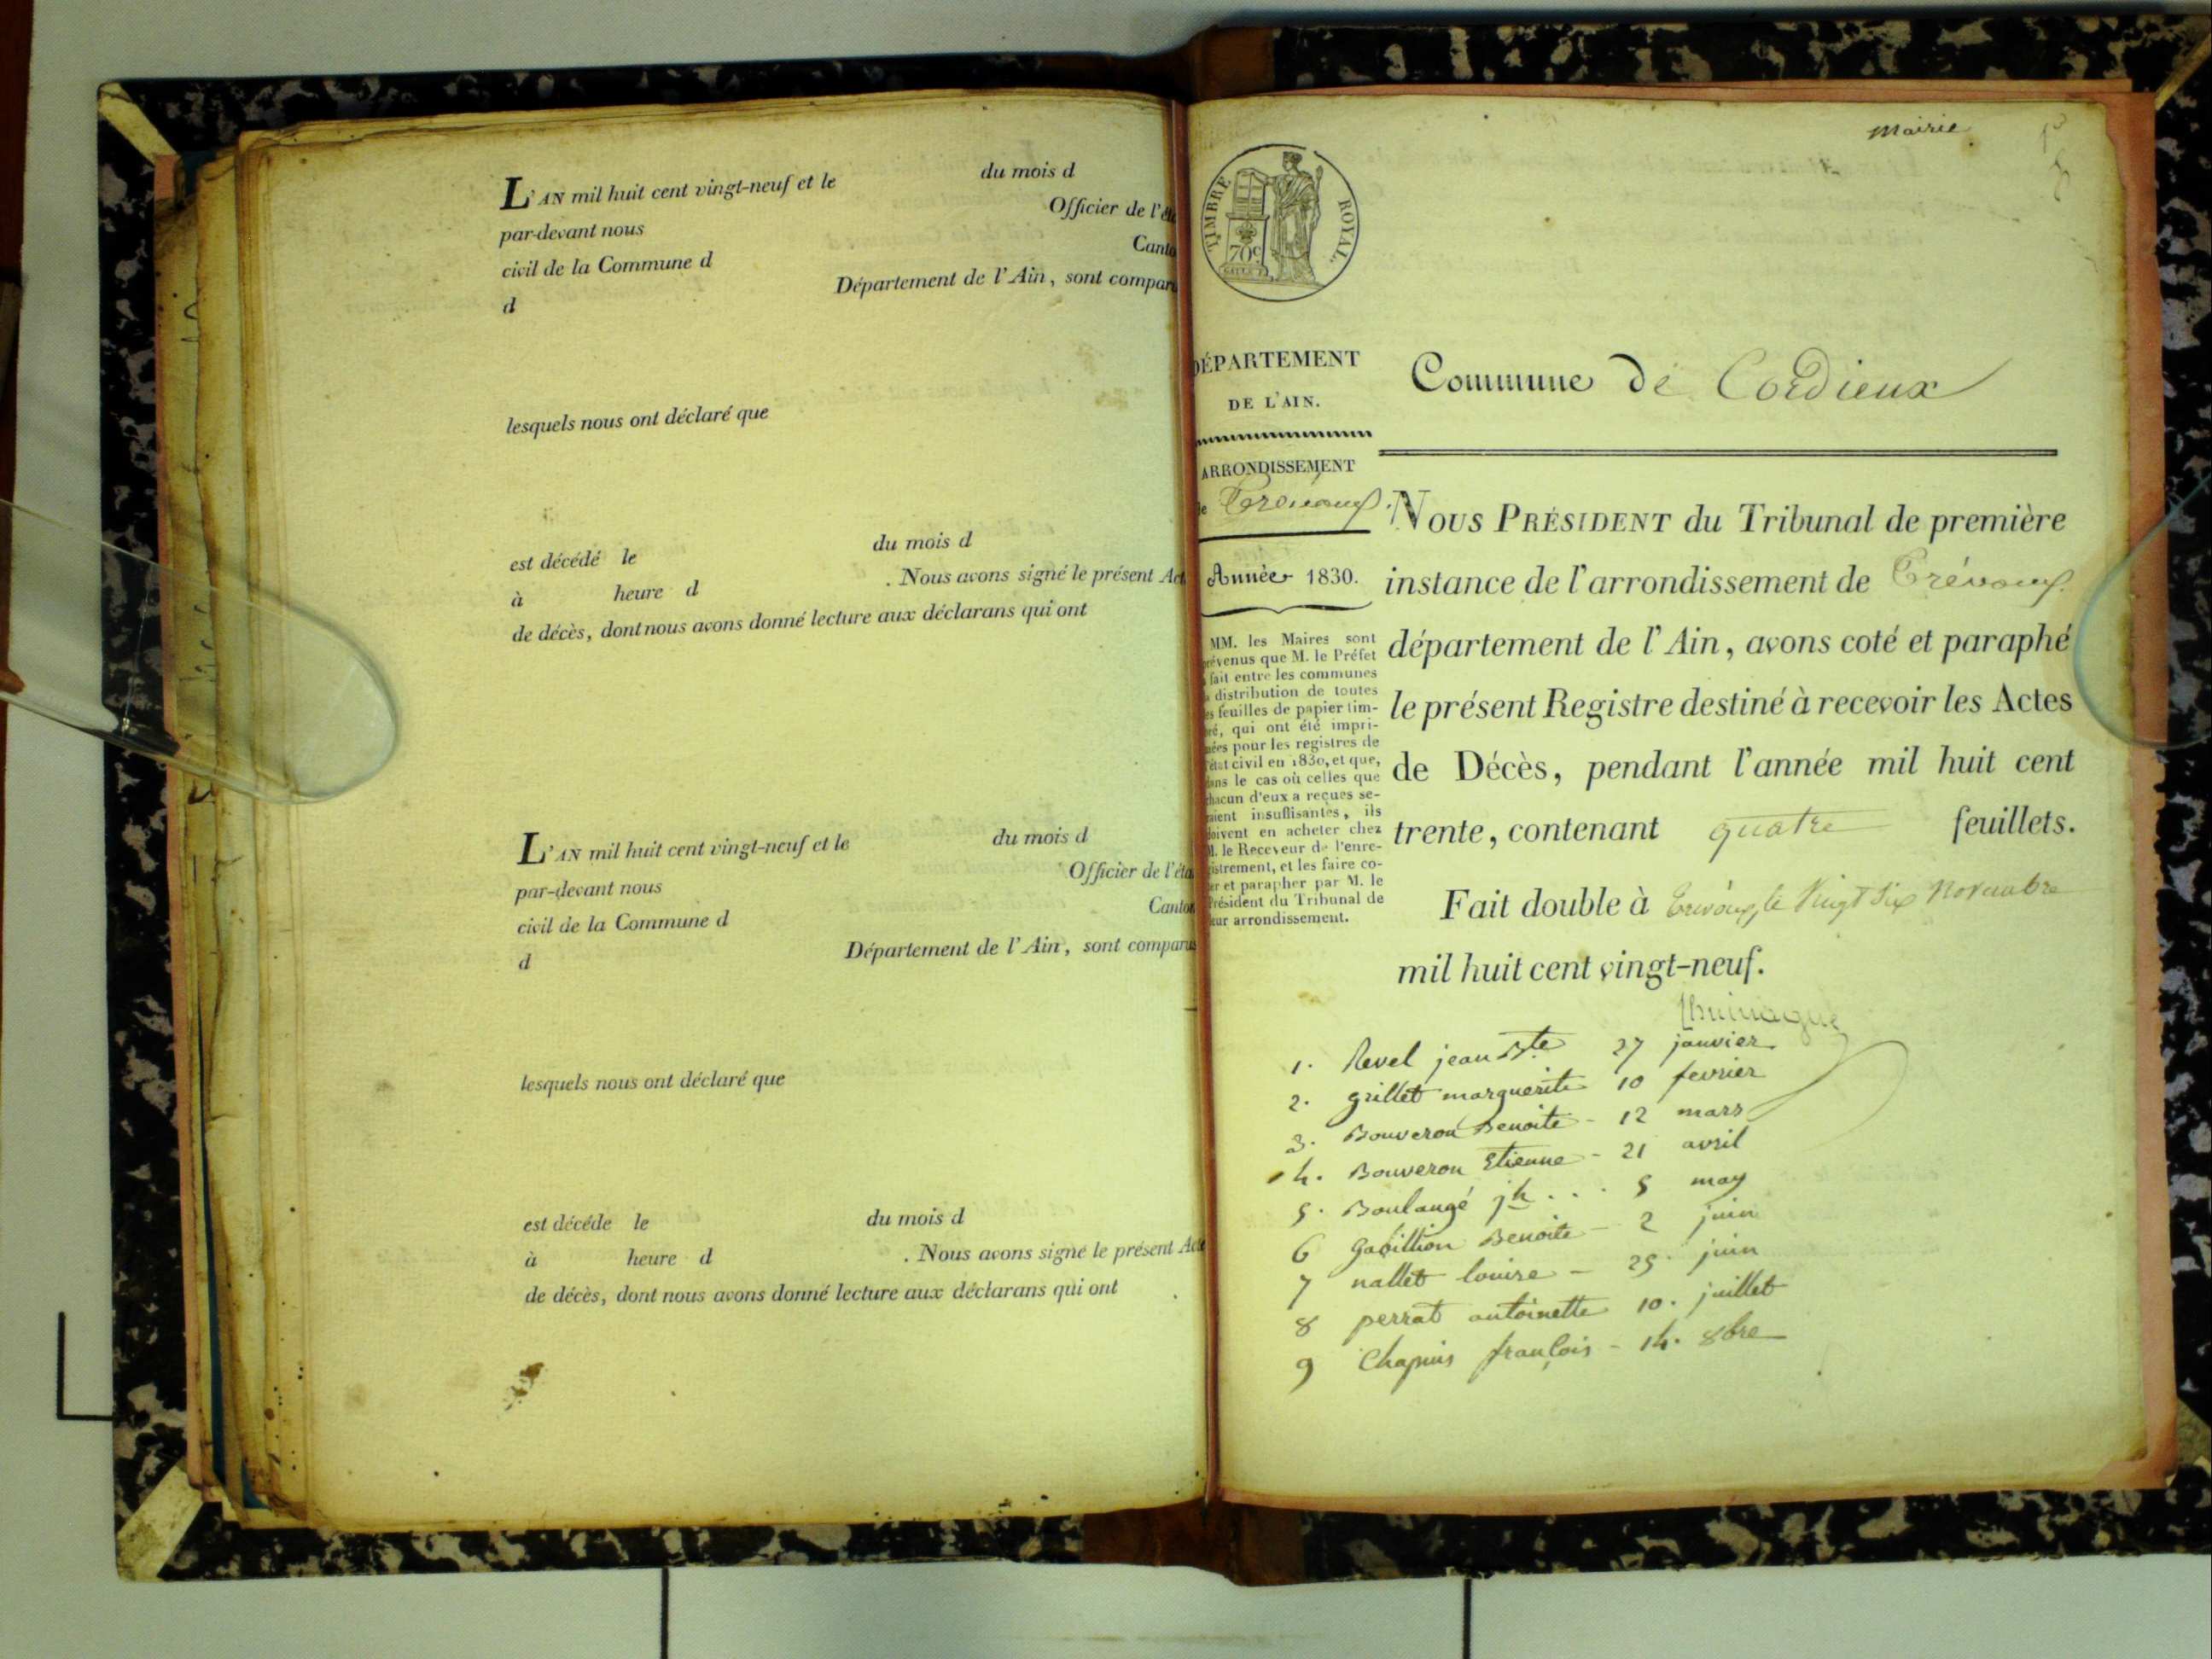 L'AN mil huit cent vingt-neuf et le du mois d
par-devant nous Officier de l'éta
civil de la Commune d Canto
d Département de l'Ain, sont comparu
lesquels nous ont déclaré que
est décédé le du mois d
à heure d . Nous avons signé le présent Act
de décès, dont nous avons donné lecture aux déclarans qui ont
L'AN mil huit cent vingt-neuf et le du mois d
par-devant nous Officier de l'éta
civil de la Commune d Canton
d Département de l'Ain, sont comparus
lesquels nous ont déclaré que
est décédé le du mois d
à heure d . Nous avons signé le présent Acte
de décès, dont nous avons donné lecture aux déclarans qui ont
Mairie
TIMBRE ROYAL.
70c
DÉPARTEMENT
DE L'AIN.
ARRONDISSEMENT
de Trévoux
Année 1830.
MM. les Maires sont
prévenus que M. le Préfet
a fait entre les communes
la distribution de toutes
les feuilles de papier tim-
bré, qui ont été impri-
mées pour les registres de
l'état civil en 1830, et que,
dans le cas où celles que
chacun d'eux a reçues se-
raient insuffisantes, ils
doivent en acheter chez
M. le Receveur de l'enre-
gistrement, et les faire co-
ter et parapher par M. le
Président du Tribunal de
leur arrondissement.
Commune de Cordieux
NOUS PRÉSIDENT du Tribunal de première
instance de l'arrondissement de Trévoux
département de l'Ain, avons coté et paraphé
le présent Registre destiné à recevoir les Actes
de Décès, pendant l'année mil huit cent
trente, contenant quatre feuillets.
Fait double à Trévoux, le Vingt Six Novembre
mil huit cent vingt-neuf.
1. Revel jean Bte 27 janvier
2. grillet marguerite 10 fevrier
3. Bouveron Benoite - 12 mars
4. Bouveron Etienne - 21 avril
5. Boulangé jh . . . 5 may
6 Gabillion Benoite - 2 juin
7 nallet louise - 29. juin
8 perrat antoinette 10. juillet
9 Chapuis françois - 14. 8bre